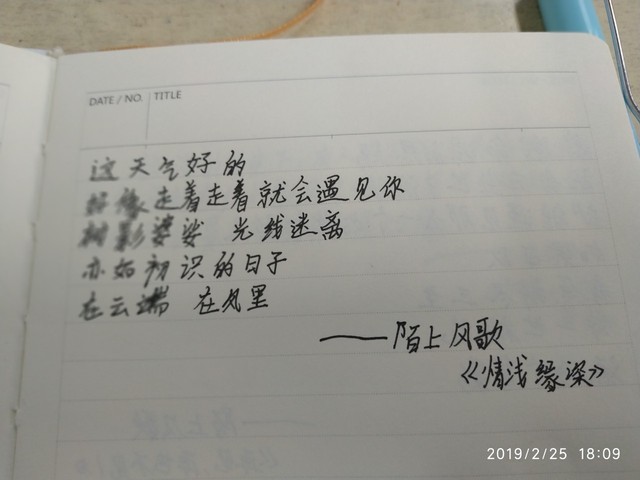 DATE / NO. TITLE
这天气好的
好像走着走着就会遇见你
树影婆娑 光线迷离
亦如初识的日子
在云端 在风里
——陌上风歌
《情浅缘深》
2019/2/25 18:09